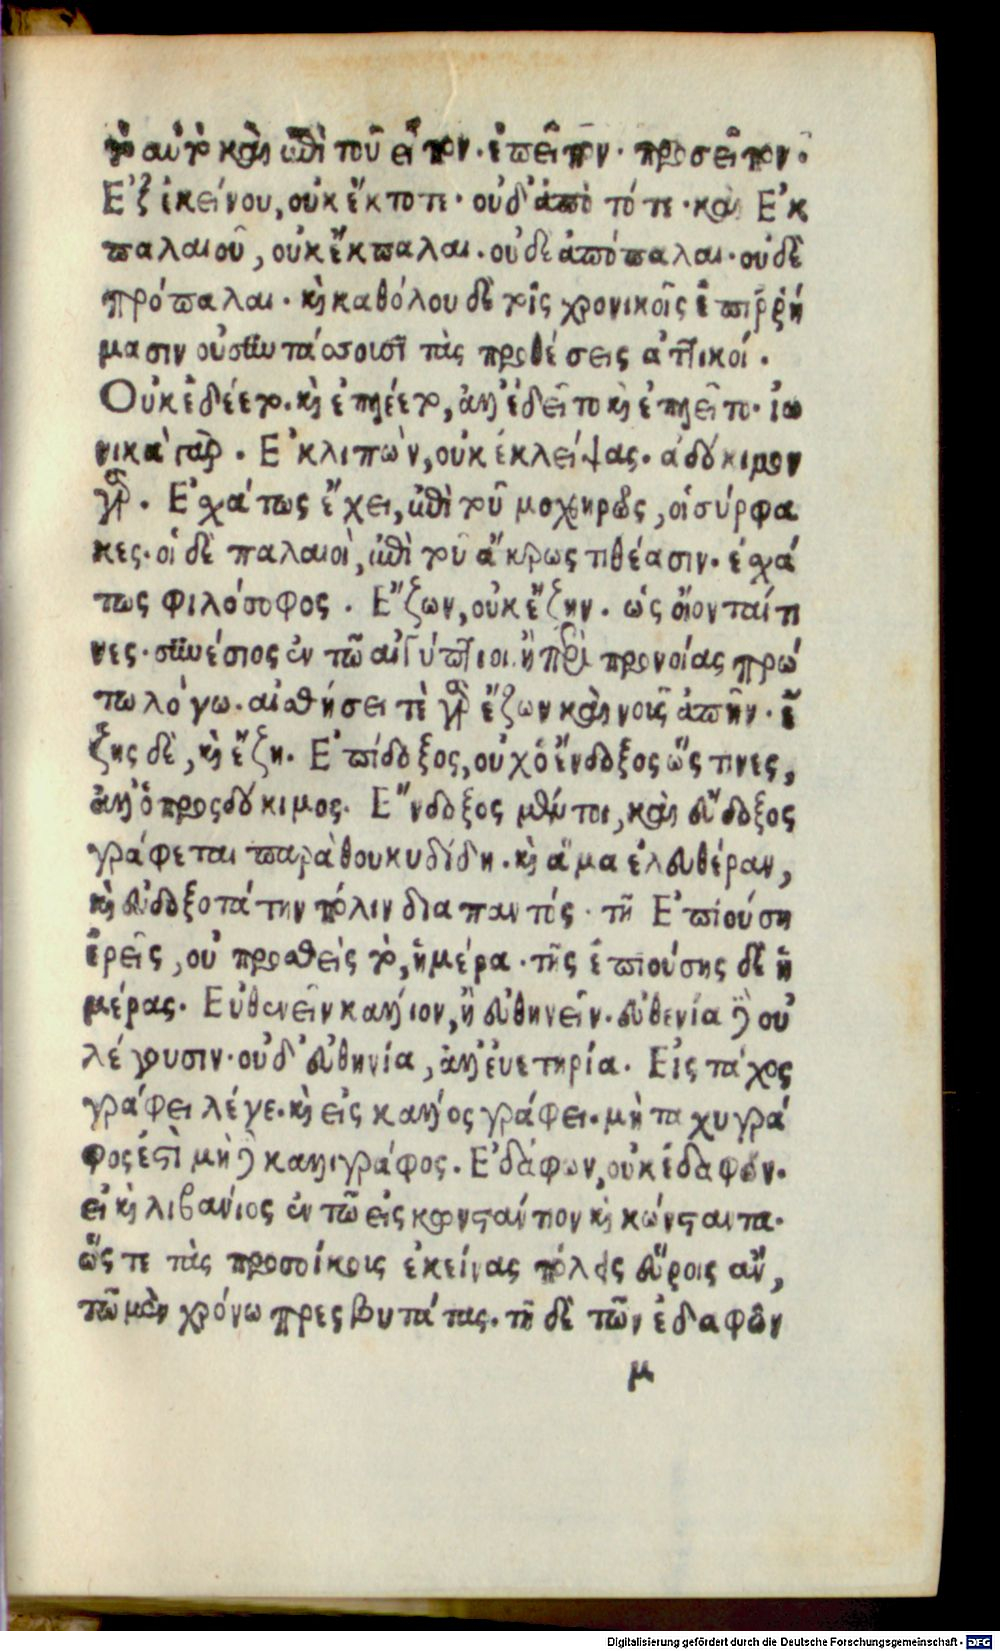 τὸ αὐτὸ καὶ ἐπὶ τοῦ εἶπον. ἐπεῖπον. προσεῖπον.
Ἐξ ἐκείνου, οὐκ ἔκτοτε. οὐδ' ἀπὸ τότε. καὶ Ἐκ
παλαιοῦ, οὐκ ἔκπαλαι. οὐδὲ ἀπόπαλαι. οὐδὲ
πρόπαλαι. καὶ καθόλου δὲ τοῖς χρονικοῖς ἐπιῤῥή
μασιν οὐ συντάσσουσι τὰς προθέσεις ἀττικοί.
Οὐκ ἐδέετο. καὶ ἐπλέετο, ἀλλ' ἐδεῖτο καὶ ἐπλεῖτο. ἰω
νικὰ γάρ. Ἐκλιπὼν, οὐκ ἐκλείψας. ἀδόκιμον
γάρ. Ἐσχάτως ἔχει, ἐπὶ τοῦ μοχθηρῶς, οἱ σύρφα
κες. οἱ δὲ παλαιοὶ, ἐπὶ τοῦ ἄκρως τιθέασιν. ἐσχά
τως φιλόσοφος. Ἔζων, οὐκ ἔζην. ὡς οἴονταί τι
νες. συνέσιος ἐν τῶ αἰγύπτιοι ἢ περὶ προνοίας πρώ
τω λόγω. αἰσθήσει τὲ γὰρ ἔζων καὶ νοῖς ἀπῆν. ἔ
ζης δὲ, καὶ ἔζη. Ἐπίδοξος, οὐχ ὁ ἔνδοξος ὥς τινες,
ἀλλ' ὁ προσδόκιμος. Ἔνδοξος μέντοι, καὶ εὔδοξος
γράφεται παρὰ θουκυδίδη. καὶ ἅμα ἐλευθέραν,
καὶ εὐδοξοτάτην πόλιν διαπαντός. τῇ Ἐπιούση
ἐρεῖς, οὐ προσθεὶς τὸ, ἡμέρα. τῆς ἐπιούσης δὲ ἡ
μέρας. Εὐθενεῖν κάλλιον, ἢ εὐθηνεῖν. εὐθενία δὲ οὐ
λέγουσιν. οὐδ' εὐθηνία, ἀλλ' εὐετηρία. Εἰς τάχος
γράφει λέγε. καὶ εἰς κάλλος γράφει. μὴ ταχυγρά
φος ἐστὶ μὴ δὲ καλλιγράφος. Ἐδάφων, οὐκ ἐδαφῶν.
εἰ καὶ λιβανίος ἐν τῶ εἰς κωνσταντίον καὶ κώνσταντα.
ὥς τε τὰς προσοίκοις ἐκείνας πόλεις εὕροις ἂν,
τῶ μὲν χρόνω πρεσβυτάτας. τῇ δὲ τῶν ἐδαφῶν
μ
Digitalisierung gefördert durch die Deutsche Forschungsgemeinschaft - DFG